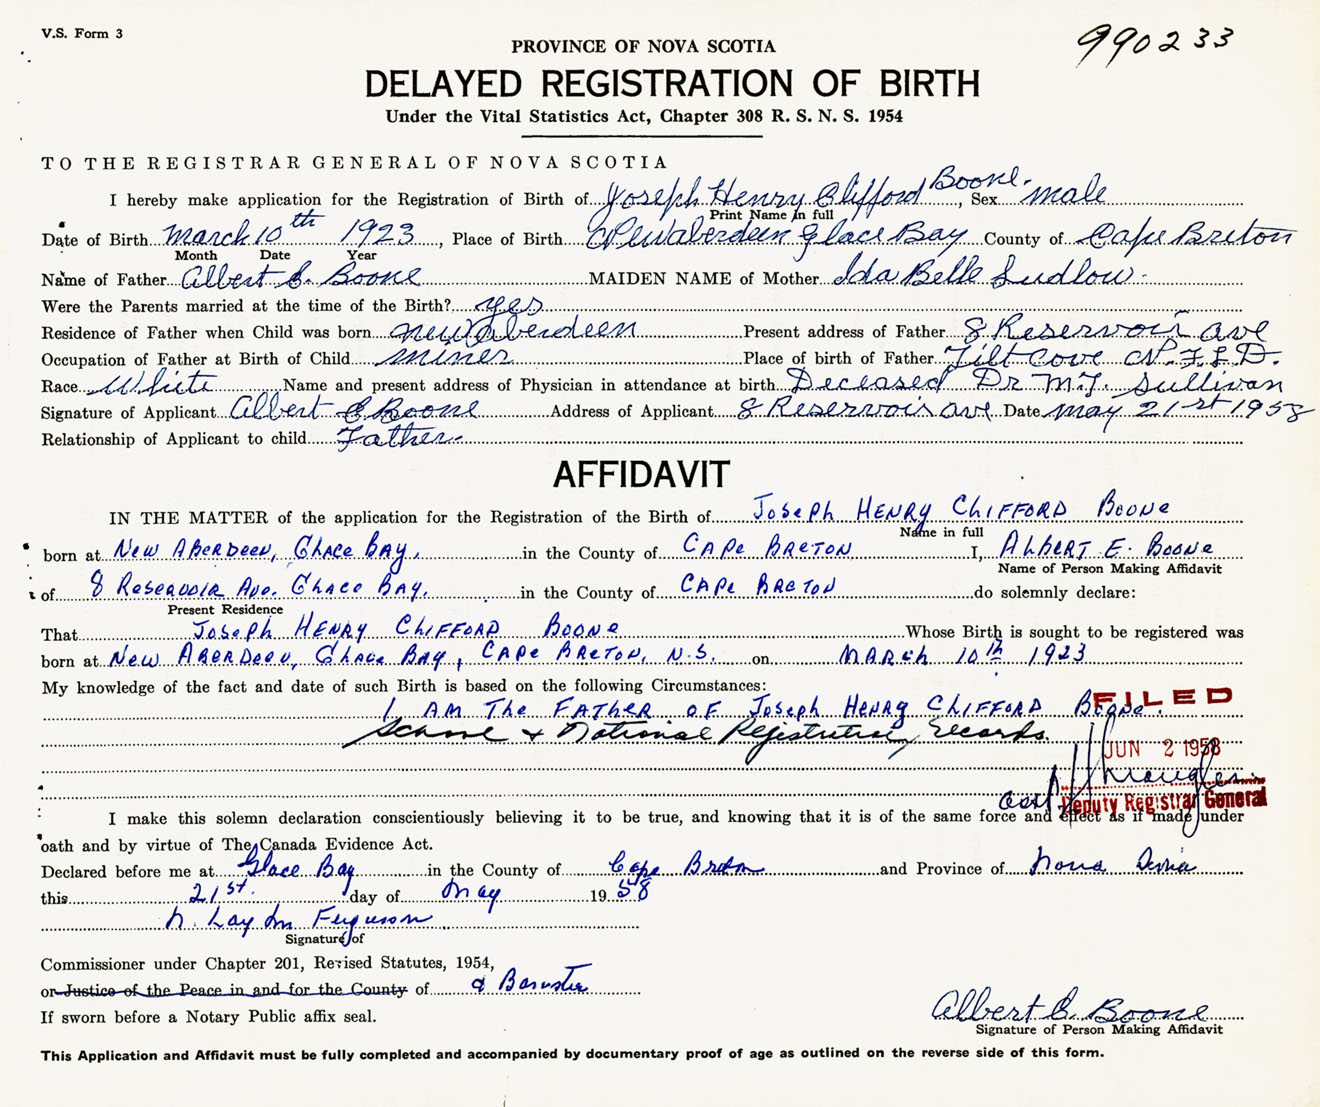 V.S. Form 3
990233
PROVINCE OF NOVA SCOTIA
DELAYED REGISTRATION OF BIRTH
Under the Vital Statistics Act, Chapter 308 R. S. N. S. 1954
TO THE REGISTRAR GENERAL OF NOVA SCOTIA
I hereby make application for the Registration of Birth of Joseph Henry Clifford Boone. , Sex male
Print Name in full
Date of Birth March 10th 1923 , Place of Birth New Aberdeen Glace Bay County of Cape Breton
Month Date Year
Name of Father Albert E. Boone MAIDEN NAME of Mother Ida Belle Ludlow
Were the Parents married at the time of the Birth? yes
Residence of Father when Child was born new aberdeen Present address of Father 8 Reservoir ave
Occupation of Father at Birth of Child miner Place of birth of Father Tilt Cove N.F.L.D.
Race White Name and present address of Physician in attendance at birth Deceased Dr M.T. Sullivan
Signature of Applicant Albert E Boone Address of Applicant 8 Reservoir ave Date may 21st 1958
Relationship of Applicant to child Father.
AFFIDAVIT
IN THE MATTER of the application for the Registration of the Birth of Joseph Henry Clifford Boone
Name in full
born at New Aberdeen, Glace Bay, in the County of Cape Breton I, Albert E. Boone
Name of Person Making Affidavit
of 8 Reservoir Ave. Glace Bay, in the County of Cape Breton do solemnly declare:
Present Residence
That Joseph Henry Clifford Boone Whose Birth is sought to be registered was
born at New Aberdeen, Glace Bay, Cape Breton, N.S. on March 10th 1923
My knowledge of the fact and date of such Birth is based on the following Circumstances:
I am the Father of Joseph Henry Clifford Boone.
FILED
School & National Registration records.
JUN 2 1958
Deputy Registrar General
I make this solemn declaration conscientiously believing it to be true, and knowing that it is of the same force and effect as if made under
oath and by virtue of The Canada Evidence Act.
Declared before me at Glace Bay in the County of Cape Breton and Province of Nova Scotia
this 21st. day of May 19 58
N. Layton Ferguson
Signature of
Commissioner under Chapter 201, Revised Statutes, 1954,
or Justice of the Peace in and for the County of a Barrister
If sworn before a Notary Public affix seal.
Albert E. Boone
Signature of Person Making Affidavit
This Application and Affidavit must be fully completed and accompanied by documentary proof of age as outlined on the reverse side of this form.